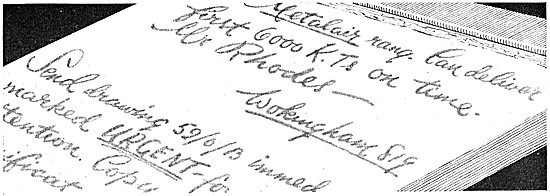 Metalair rang. Can deliver
first 6000 K.Ts on time.
Mr Rhodes —
Wokingham 819
Send drawing 59/6/13 immed
marked URGENT - for
tention. Copy
tificat